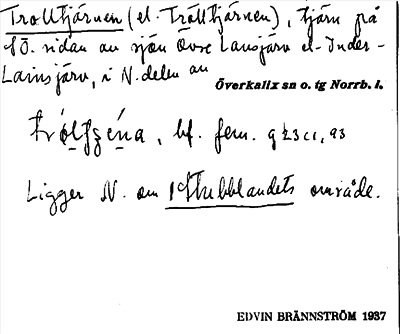 Trolltjärnen (el. Trålltjärnen), tjärn på
SÖ. sidan av sjön Övre Lansjärv el. Inder-
Lansjärv, i N. delen av
Överkalix sn o. tg Norrb. l.
bf. fem. 923
Ligger N. om Stubblandets område.
EDVIN BRÄNNSTRÖM 1937